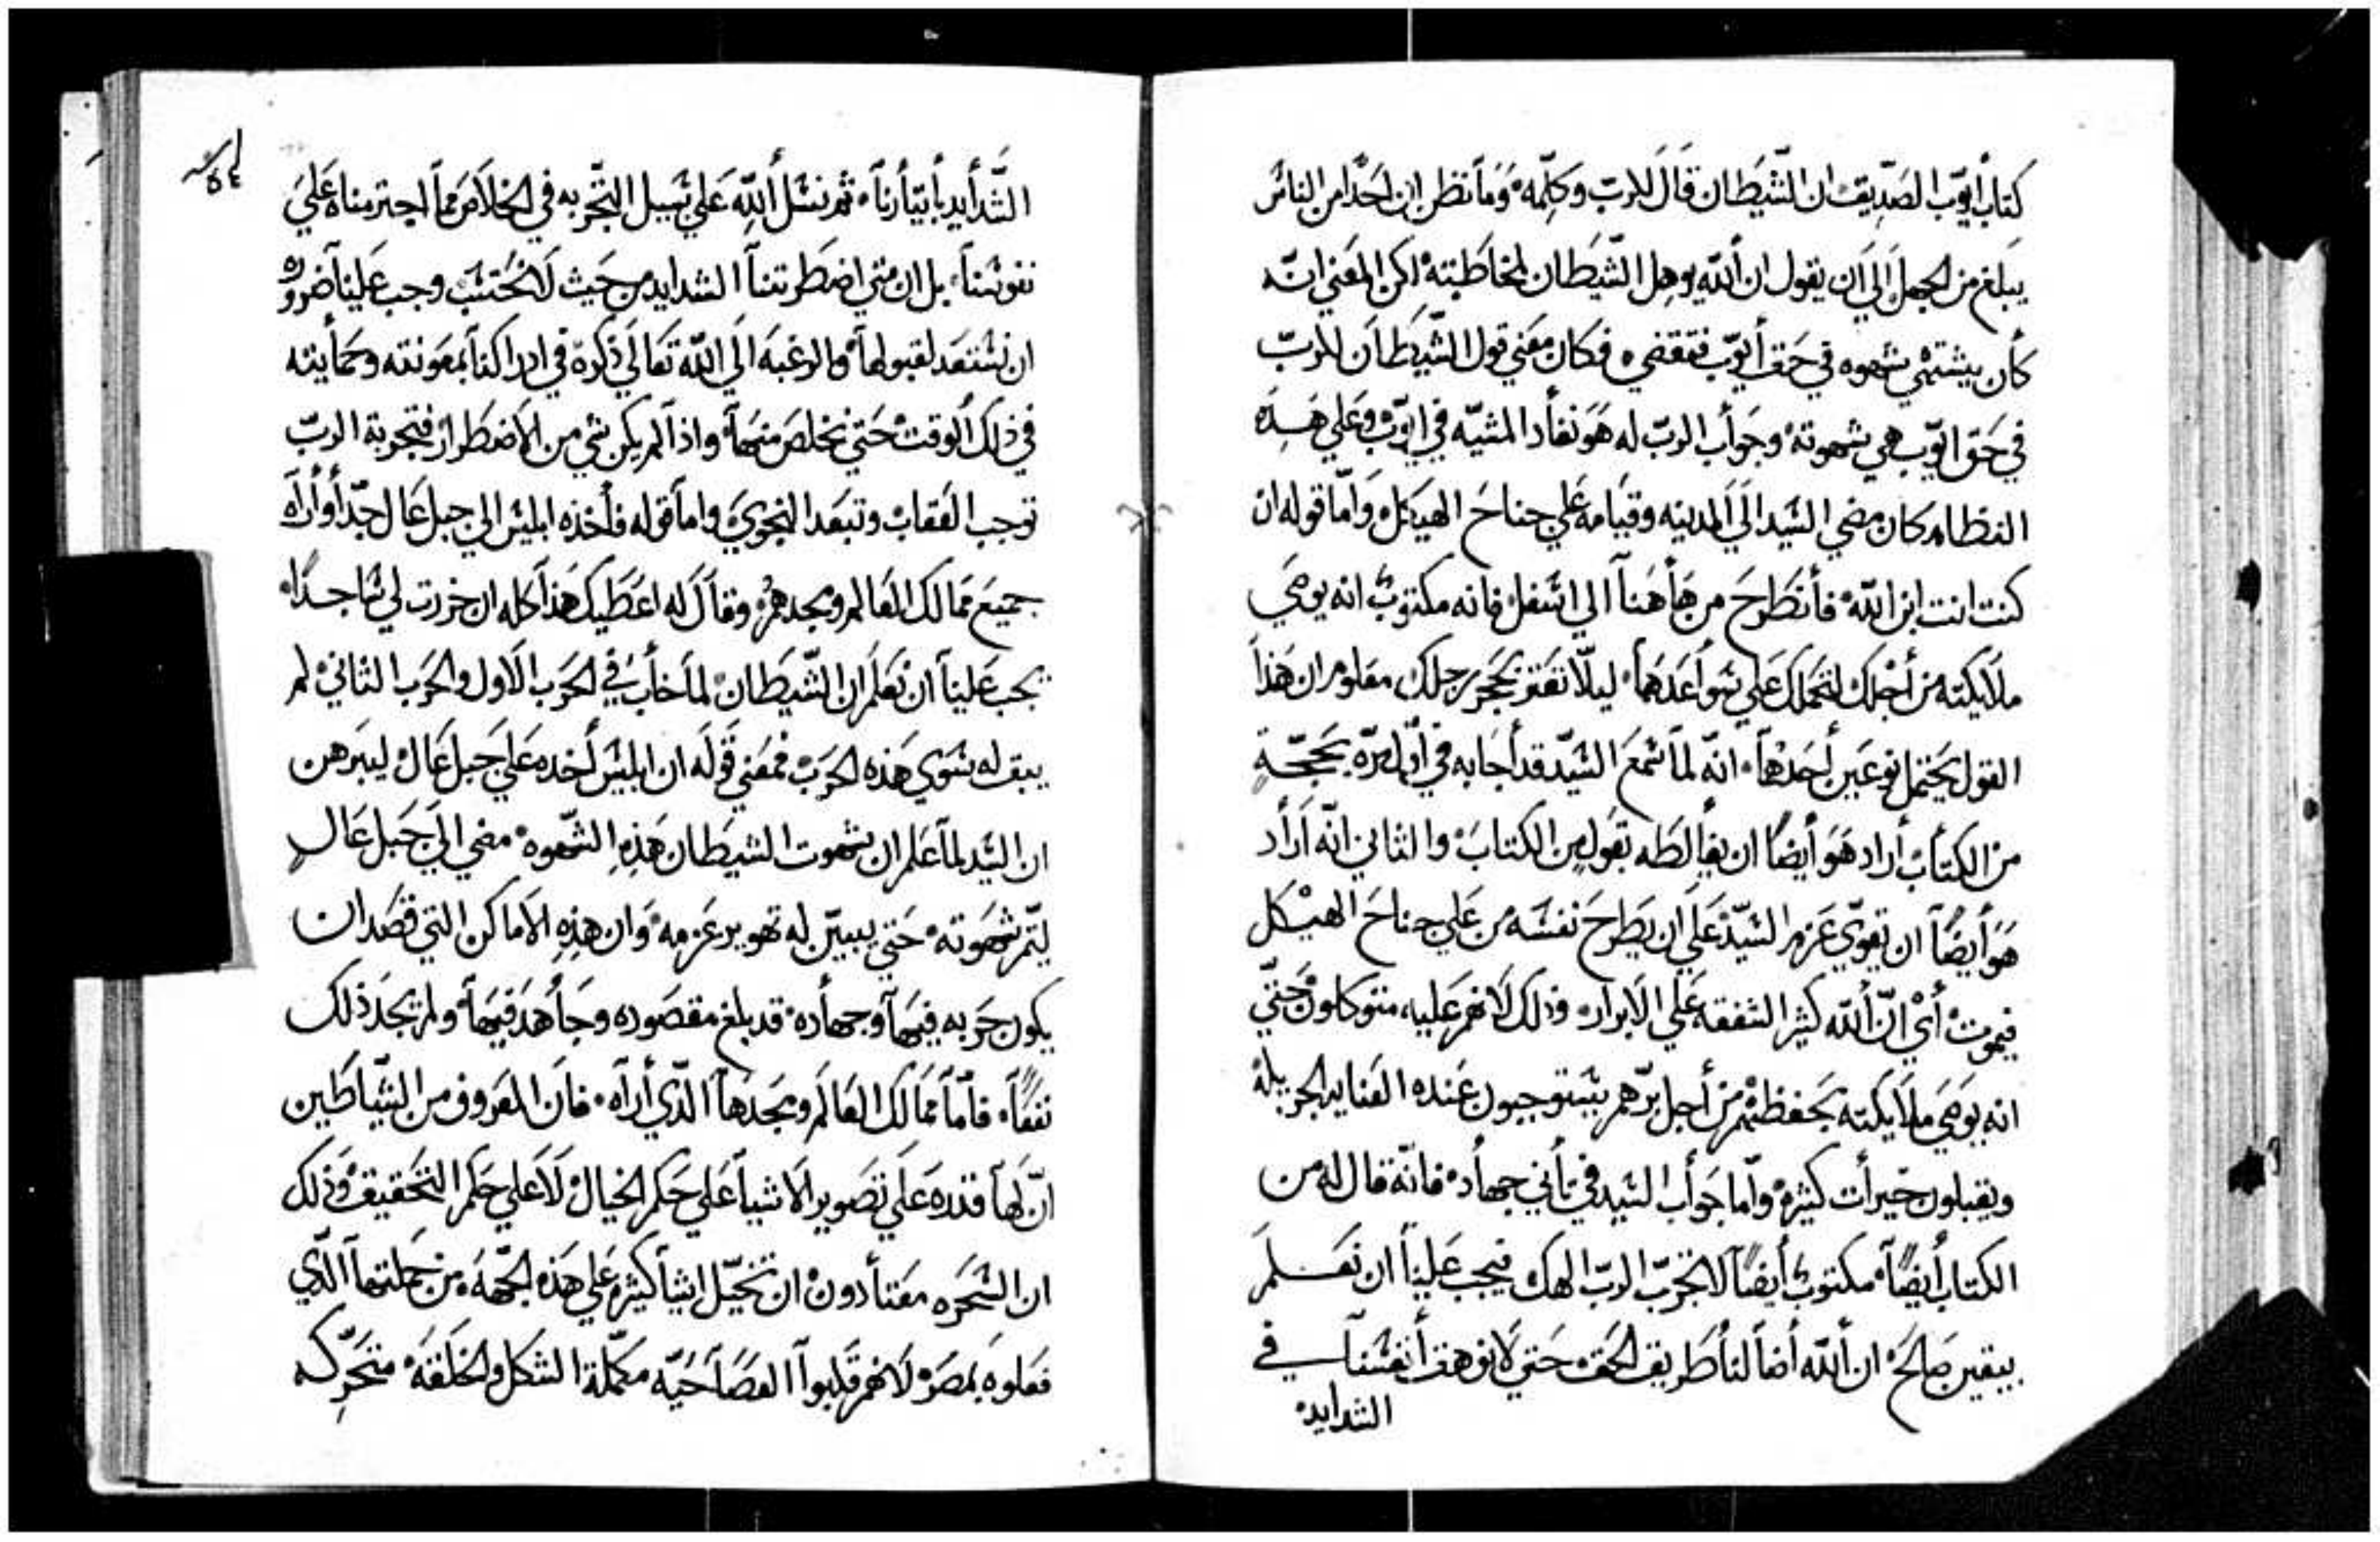 كتاب أيوب الصديق ان الشيطان قال للرب وكلمه وما نظن ان احدًا من الناس
يبلغ من الجهل الي ان يقول ان الله يوهل الشيطان لمخاطبته لكن المعني انه
كان يشتهي شهوه في حق أيوب فتقضي فكان معني قول الشيطان للرب
في حق ايوب هي شهوته وجواب الرب له هو نفاد المشيه في ايوب وعلي هذه
النظام كان مضي السيد الي المدينه وقيامه علي جناح الهيكل واما قوله ان
كنت انت ابن الله فأنطرح من هاهنا الي اسفل فانه مكتوب انه يوصي
ملايكته من أجلك لتحملك علي سواعدها ليلا تعتر بحجر رجلك معلوم ان هذا
القول يحتمل نوعين أحدها انه لما سمع السيد قد أجابه في أول مره بحجة
من الكتاب أراد هو أيضًا ان يغالطه بقول من الكتاب والثاني انه أراد
هو أيضًا ان يقوي عزم السيد علي ان يطرح نفسه من علي جناح الهيكل
فيموت أي ان الله كثير الشفقه علي الابرار وذلك لانهم عليه متوكلون حتي
انه يوصي ملايكته بحفظهم من أجل برهم يستوجبون عنده العنايه الجزيله
ويقبلون خيرات كثيره واما جواب السيد في تاني جهاده فانه قال له من
الكتاب أيضًا مكتوب أيضًا لا تجرب الرب الهك فيجب علينا ان نعلم
بيقين صالح ان الله أضا لنا طريق الحق حتي لا نوهق أنفسنا في
الشدايد
٥٤
الشدايد بأتيارنا ثم نسل الله علي سبيل التجربه في الخلاص مما اجترمناه علي
نفوسنا بل ان متي اضطرتنا الشدايد من حيث لا نحتسب وجب علينا ضروره
ان نستعد لقبولها والرغبه الي الله تعالي ذكره في ادراكنا بمعونته وحمايته
في ذلك الوقت حتي نخلص منها واذا لم يكن شي من الاضطرار فتجربة الرب
توجب العقاب وتبعد النجوي واما قوله فأخذه ابليس الي جبل عال جدًا وأراه
جميع ممالك العالم ومجدهم وقال له اعطيك هذا كله ان خررت لي ساجدًا
يجب علينا ان نعلم ان الشيطان لما خاب في الحرب الاول والحرب الثاني لم
يبق له سوي هذه الحرب فمعني قوله ان ابليس أخده علي جبل عال ليبرهن
ان السيد لما علم ان شهوت الشيطان هذه الشهوه مضي الي جبل عال
ليتم شهوته حتي يبين له تهوير عزمه وان هذه الاماكن التي قصد ان
يكون حربه فيها وجهاده قد بلغ مقصوده وجاهد فيها ولم تجد ذلك
نفعًا فاما ممالك العالم ومجدها الذي أراه فان المعروف من الشياطين
ان لها قدره علي تصوير الاشيا علي حكم الخيال لا علي حكم التحقيق وذلك
ان السحره معتادون ان تخيل اشيا كثيره علي هذه الجهه من جملتها الذي
فعلوه بمصر لانهم قلبوا العصا حيه مكملة الشكل والخلقه متحركه